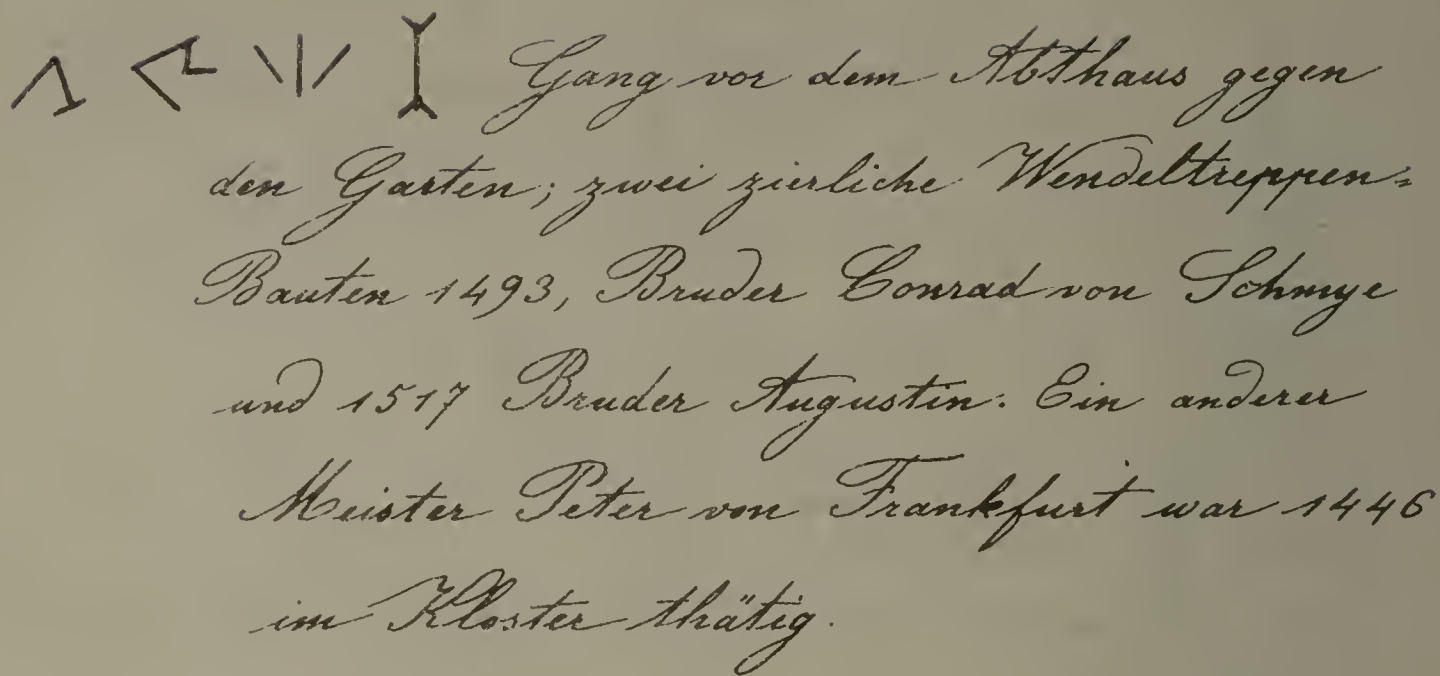 Gang vor dem Abthaus gegen
den Garten; zwei zierliche Wendeltreppen=
Bauten 1493, Bruder Conrad von Schmye
und 1517 Bruder Augustin. Ein anderer
Meister Peter von Frankfurt war 1446
im Kloster thätig.